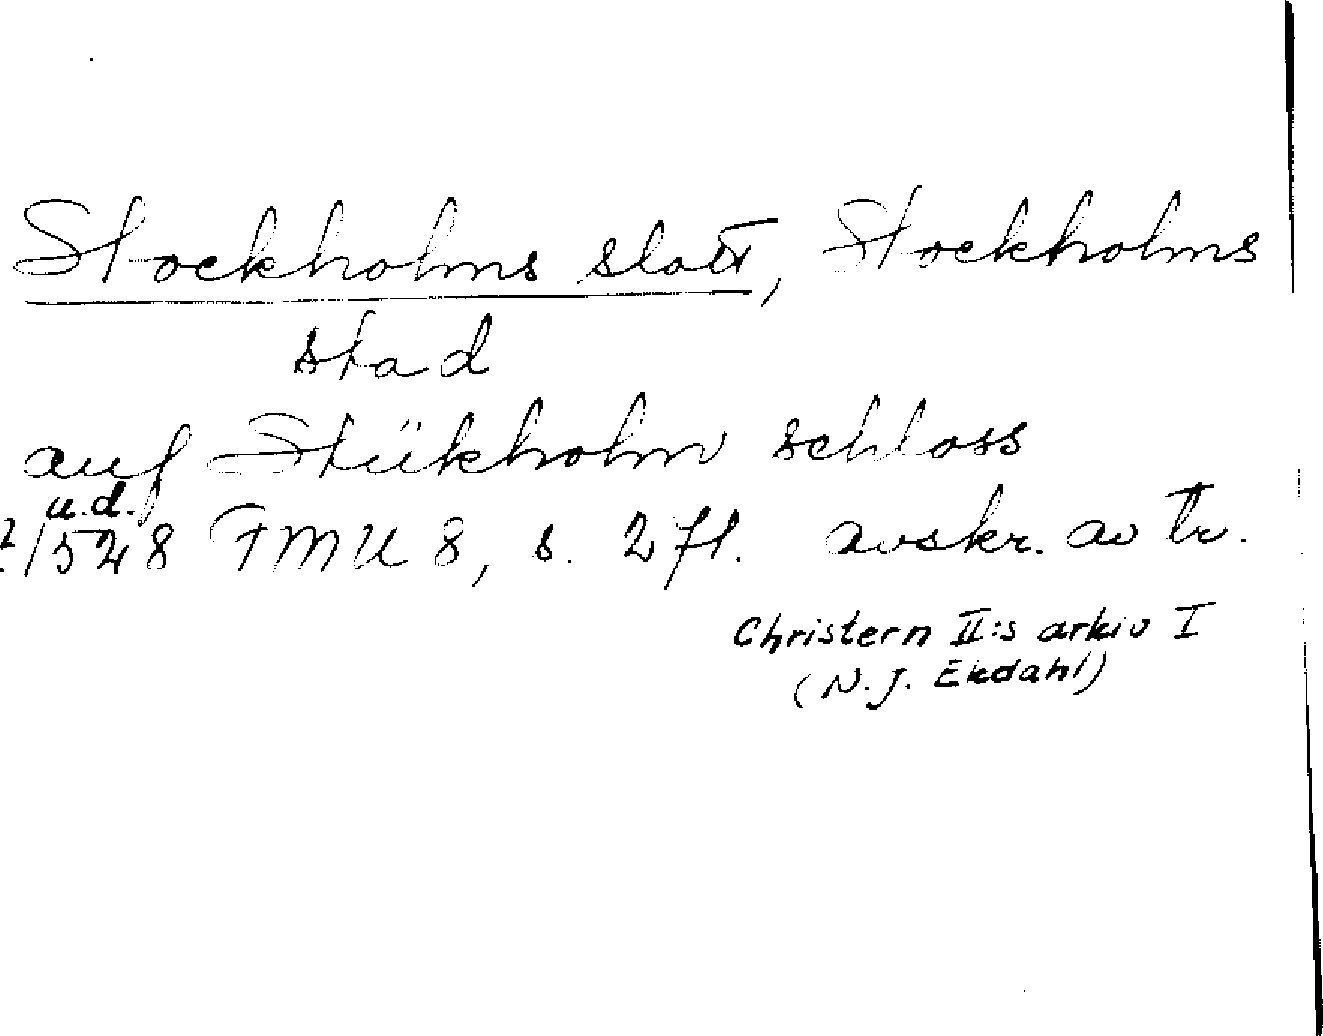 Stockholms slott, Stockholms
stad
auf Stükholm schloss
u.d.
1528 FMU 8, s. 271. avskr. av tr.
Christern II:s arkiv I
(N.J. Ekdahl)